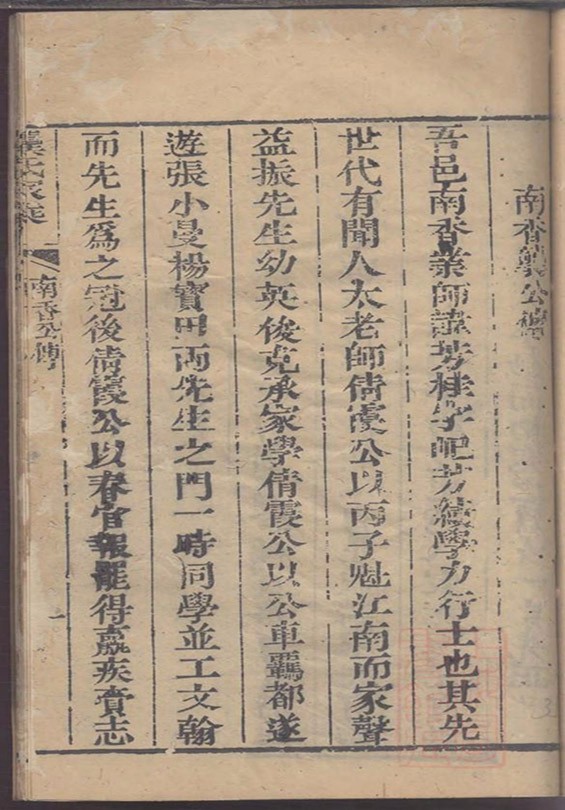 南香龔公傳
吾邑南香業師諱芳桂字配芳績學力行士也其先
世代有聞人太老師倩霞公以丙子魁江南而家聲
益振先生幼英俊克承家學倩霞公以公車羈都遂
遊張小曼楊寶田兩先生之門一時同學並工文翰
而先生為之冠後倩霞公以春官報罷得羸疾賫志
龔氏家乘
南香公傳
一